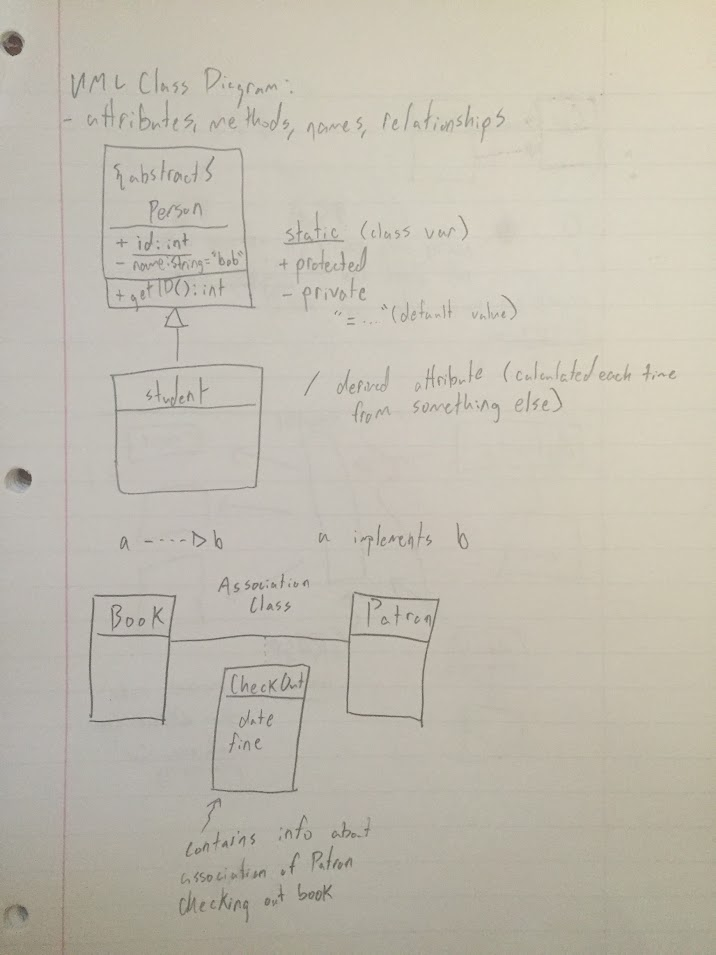 UML Class Diagram:
- attributes, methods, names, relationships
{abstract}
Person
+ id: int
- name: string = "bob"
+ getID(): int
static (class var)
+ protected
- private
"=..." (default value)
student
/ derived attribute (calculated each time
from something else)
a ----▷ b
a implements b
Association
Class
Book
Patron
CheckOut
date
fine
contains info about
association of Patron
checking out book